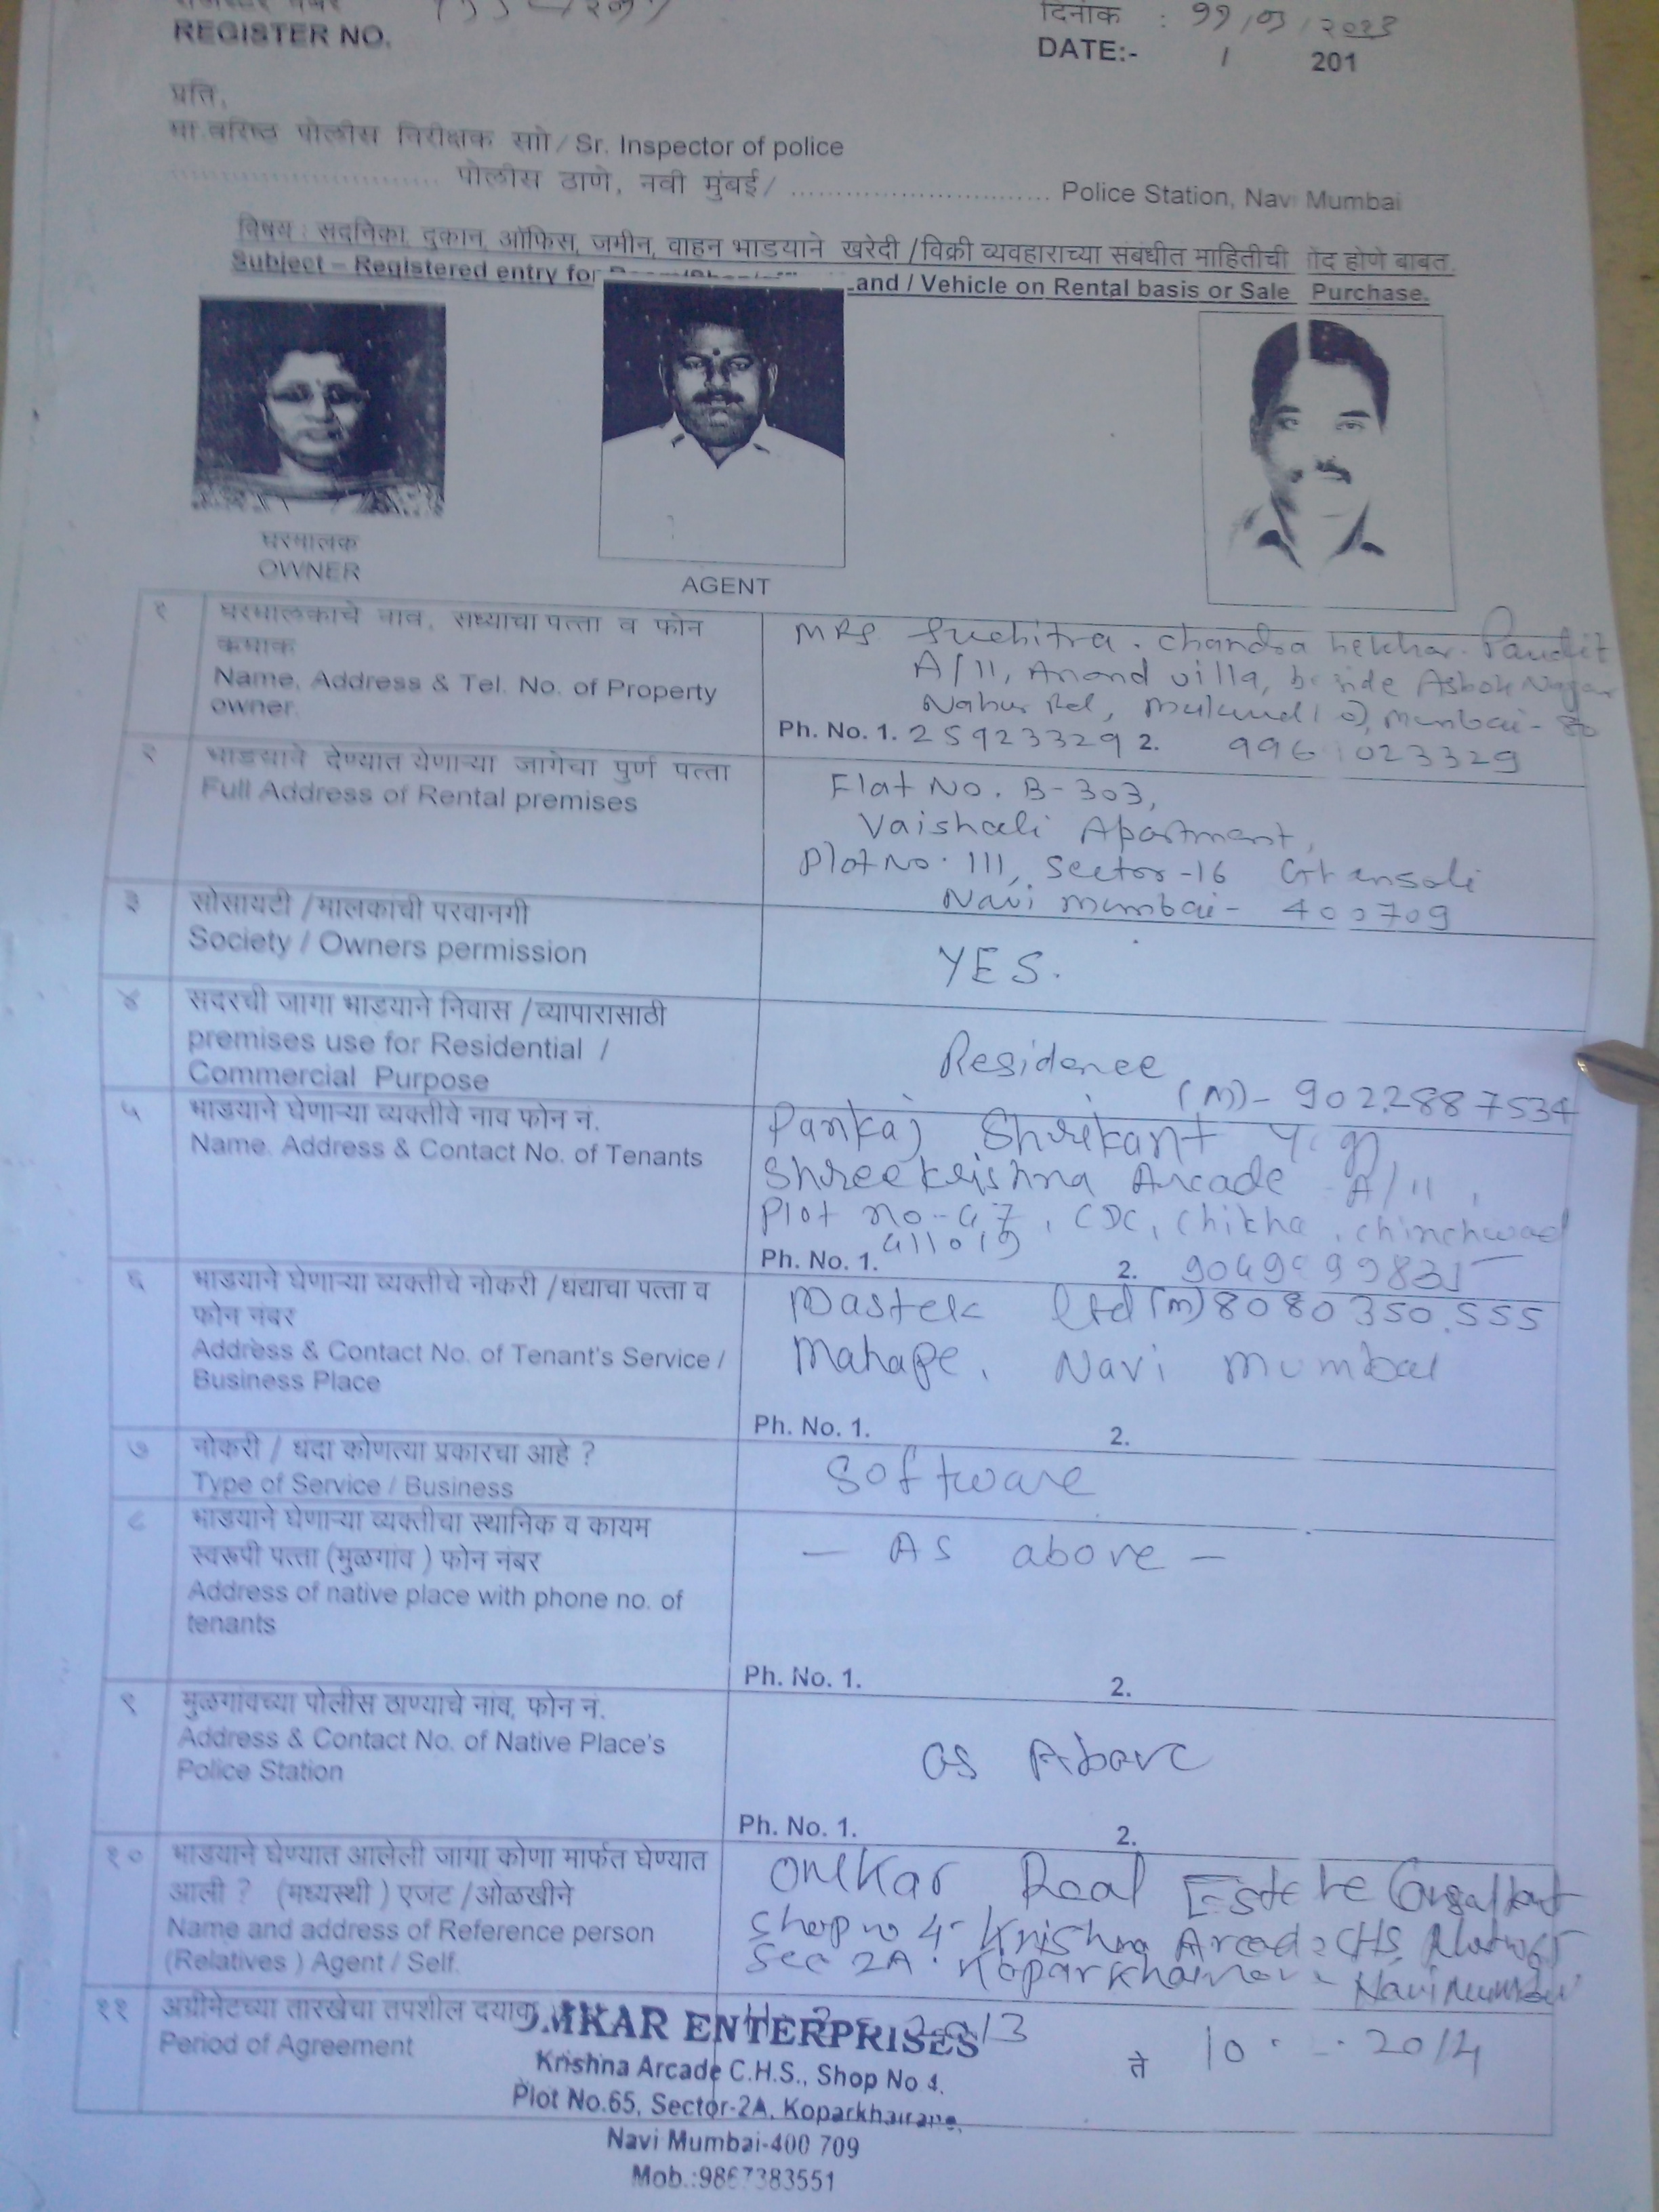 REGISTER NO.
दिनांक : ११/०३/२०१३
DATE:- / 201
प्रति,
मा.वरिष्ठ पोलीस निरीक्षक साो / Sr. Inspector of police
पोलीस ठाणे, नवी मुंबई / Police Station, Navi Mumbai
विषय : सदनिका, दुकान, ऑफिस, जमीन, वाहन भाडयाने खरेदी /विक्री व्यवहाराच्या संबंधीत माहितीची नोंद होणे बाबत.
Subject – Registered entry for and / Vehicle on Rental basis or Sale Purchase.
घरमालक
OWNER
AGENT
१ घरमालकाचे नाव, सध्याचा पत्ता व फोन
क्रमांक
Name, Address & Tel. No. of Property
owner.
MRS Suchitra. Chandra Pandit
A/11, Anand villa, beside Ashok Nagar
Nahur Rd, Mumbai-80
Ph. No. 1. 25923329 2. 996 023329
२ भाडयाने देण्यात येणाऱ्या जागेचा पुर्ण पत्ता
Full Address of Rental premises
Flat No. B-303,
Vaishali Apartment,
Plot No. 111, Sector-16 Ghansoli
Navi mumbai- 400709
३ सोसायटी /मालकाची परवानगी
Society / Owners permission
YES.
४ सदरची जागा भाडयाने निवास /व्यापारासाठी
premises use for Residential /
Commercial Purpose
Residence
(M)- 9022887534
५ भाडयाने घेणाऱ्या व्यक्तीचे नाव फोन नं.
Name, Address & Contact No. of Tenants
Pankaj Shrikant
Shreekrishna Arcade A/11,
Plot no- , CDC, Chikha , chinchwad
411019
Ph. No. 1. 2.
६ भाडयाने घेणाऱ्या व्यक्तीचे नोकरी /धद्याचा पत्ता व
फोन नंबर
Address & Contact No. of Tenant's Service /
Business Place
Mastek ltd (m) 8080350555
Mahape, Navi mumbai
Ph. No. 1. 2.
७ नोकरी / धदा कोणत्या प्रकारचा आहे ?
Type of Service / Business
Software
८ भाडयाने घेणाऱ्या व्यक्तीचा स्थानिक व कायम
स्वरूपी पत्ता (मुळगांव ) फोन नंबर
Address of native place with phone no. of
tenants
— AS above —
Ph. No. 1. 2.
९ मुळगांवच्या पोलीस ठाण्याचे नांव, फोन नं.
Address & Contact No. of Native Place's
Police Station
as Above
Ph. No. 1. 2.
१० भाडयाने घेण्यात आलेली जागा कोणा मार्फत घेण्यात
आली ? (मध्यस्थी ) एजंट /ओळखीने
Name and address of Reference person
(Relatives ) Agent / Self.
Omkar Real Estate Consultant
Shop no 4- Krishna Arcade CHS,
Sec 2A. Koparkhairane Navi Mumbai
११ अग्रीमेटच्या तारखेचा तपशील दयावा
Period of Agreement
2013 ते 10 2014
OMKAR ENTERPRISES
Krishna Arcade C.H.S., Shop No 4.
Plot No.65, Sector-2A, Koparkhairane,
Navi Mumbai-400 709
Mob.:9867383551